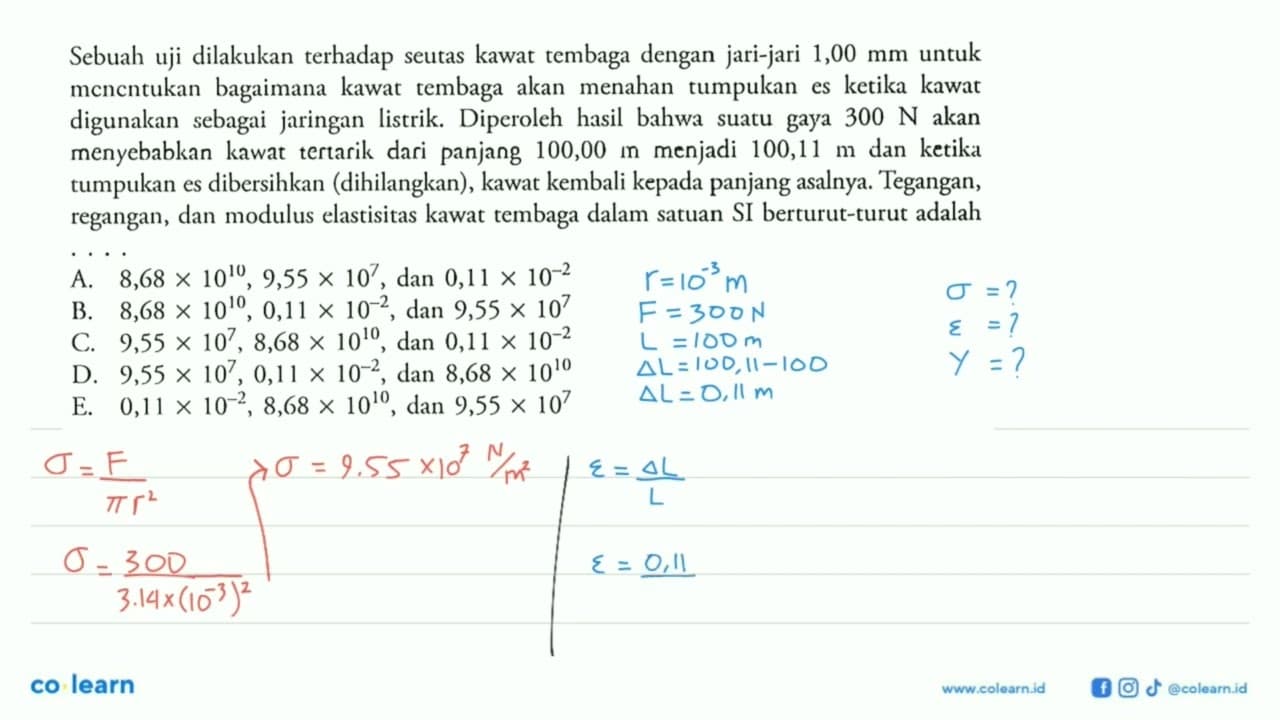 Sebuah uji dilakukan terhadap seutas kawat tembaga dengan jari-jari 1,00 mm untuk
menentukan bagaimana kawat tembaga akan menahan tumpukan es ketika kawat
digunakan sebagai jaringan listrik. Diperoleh hasil bahwa suatu gaya 300 N akan
menyebabkan kawat tertarik dari panjang 100,00 m menjadi 100,11 m dan ketika
tumpukan es dibersihkan (dihilangkan), kawat kembali kepada panjang asalnya. Tegangan,
regangan, dan modulus elastisitas kawat tembaga dalam satuan SI berturut-turut adalah
. . . .
A. 8,68 × 10¹⁰, 9,55 × 10⁷, dan 0,11 × 10⁻²
B. 8,68 × 10¹⁰, 0,11 × 10⁻², dan 9,55 × 10⁷
C. 9,55 × 10⁷, 8,68 × 10¹⁰, dan 0,11 × 10⁻²
D. 9,55 × 10⁷, 0,11 × 10⁻², dan 8,68 × 10¹⁰
E. 0,11 × 10⁻², 8,68 × 10¹⁰, dan 9,55 × 10⁷
r = 10⁻³ m
F = 300 N
L = 100 m
ΔL = 100,11 - 100
ΔL = 0,11 m
σ = ?
ε = ?
Y = ?
σ = F
πr²
σ = 300
3.14 × (10⁻³)²
σ = 9.55 × 10⁷ N/m²
ε = ΔL
L
ε = 0,11
co·learn
www.colearn.id
@colearn.id